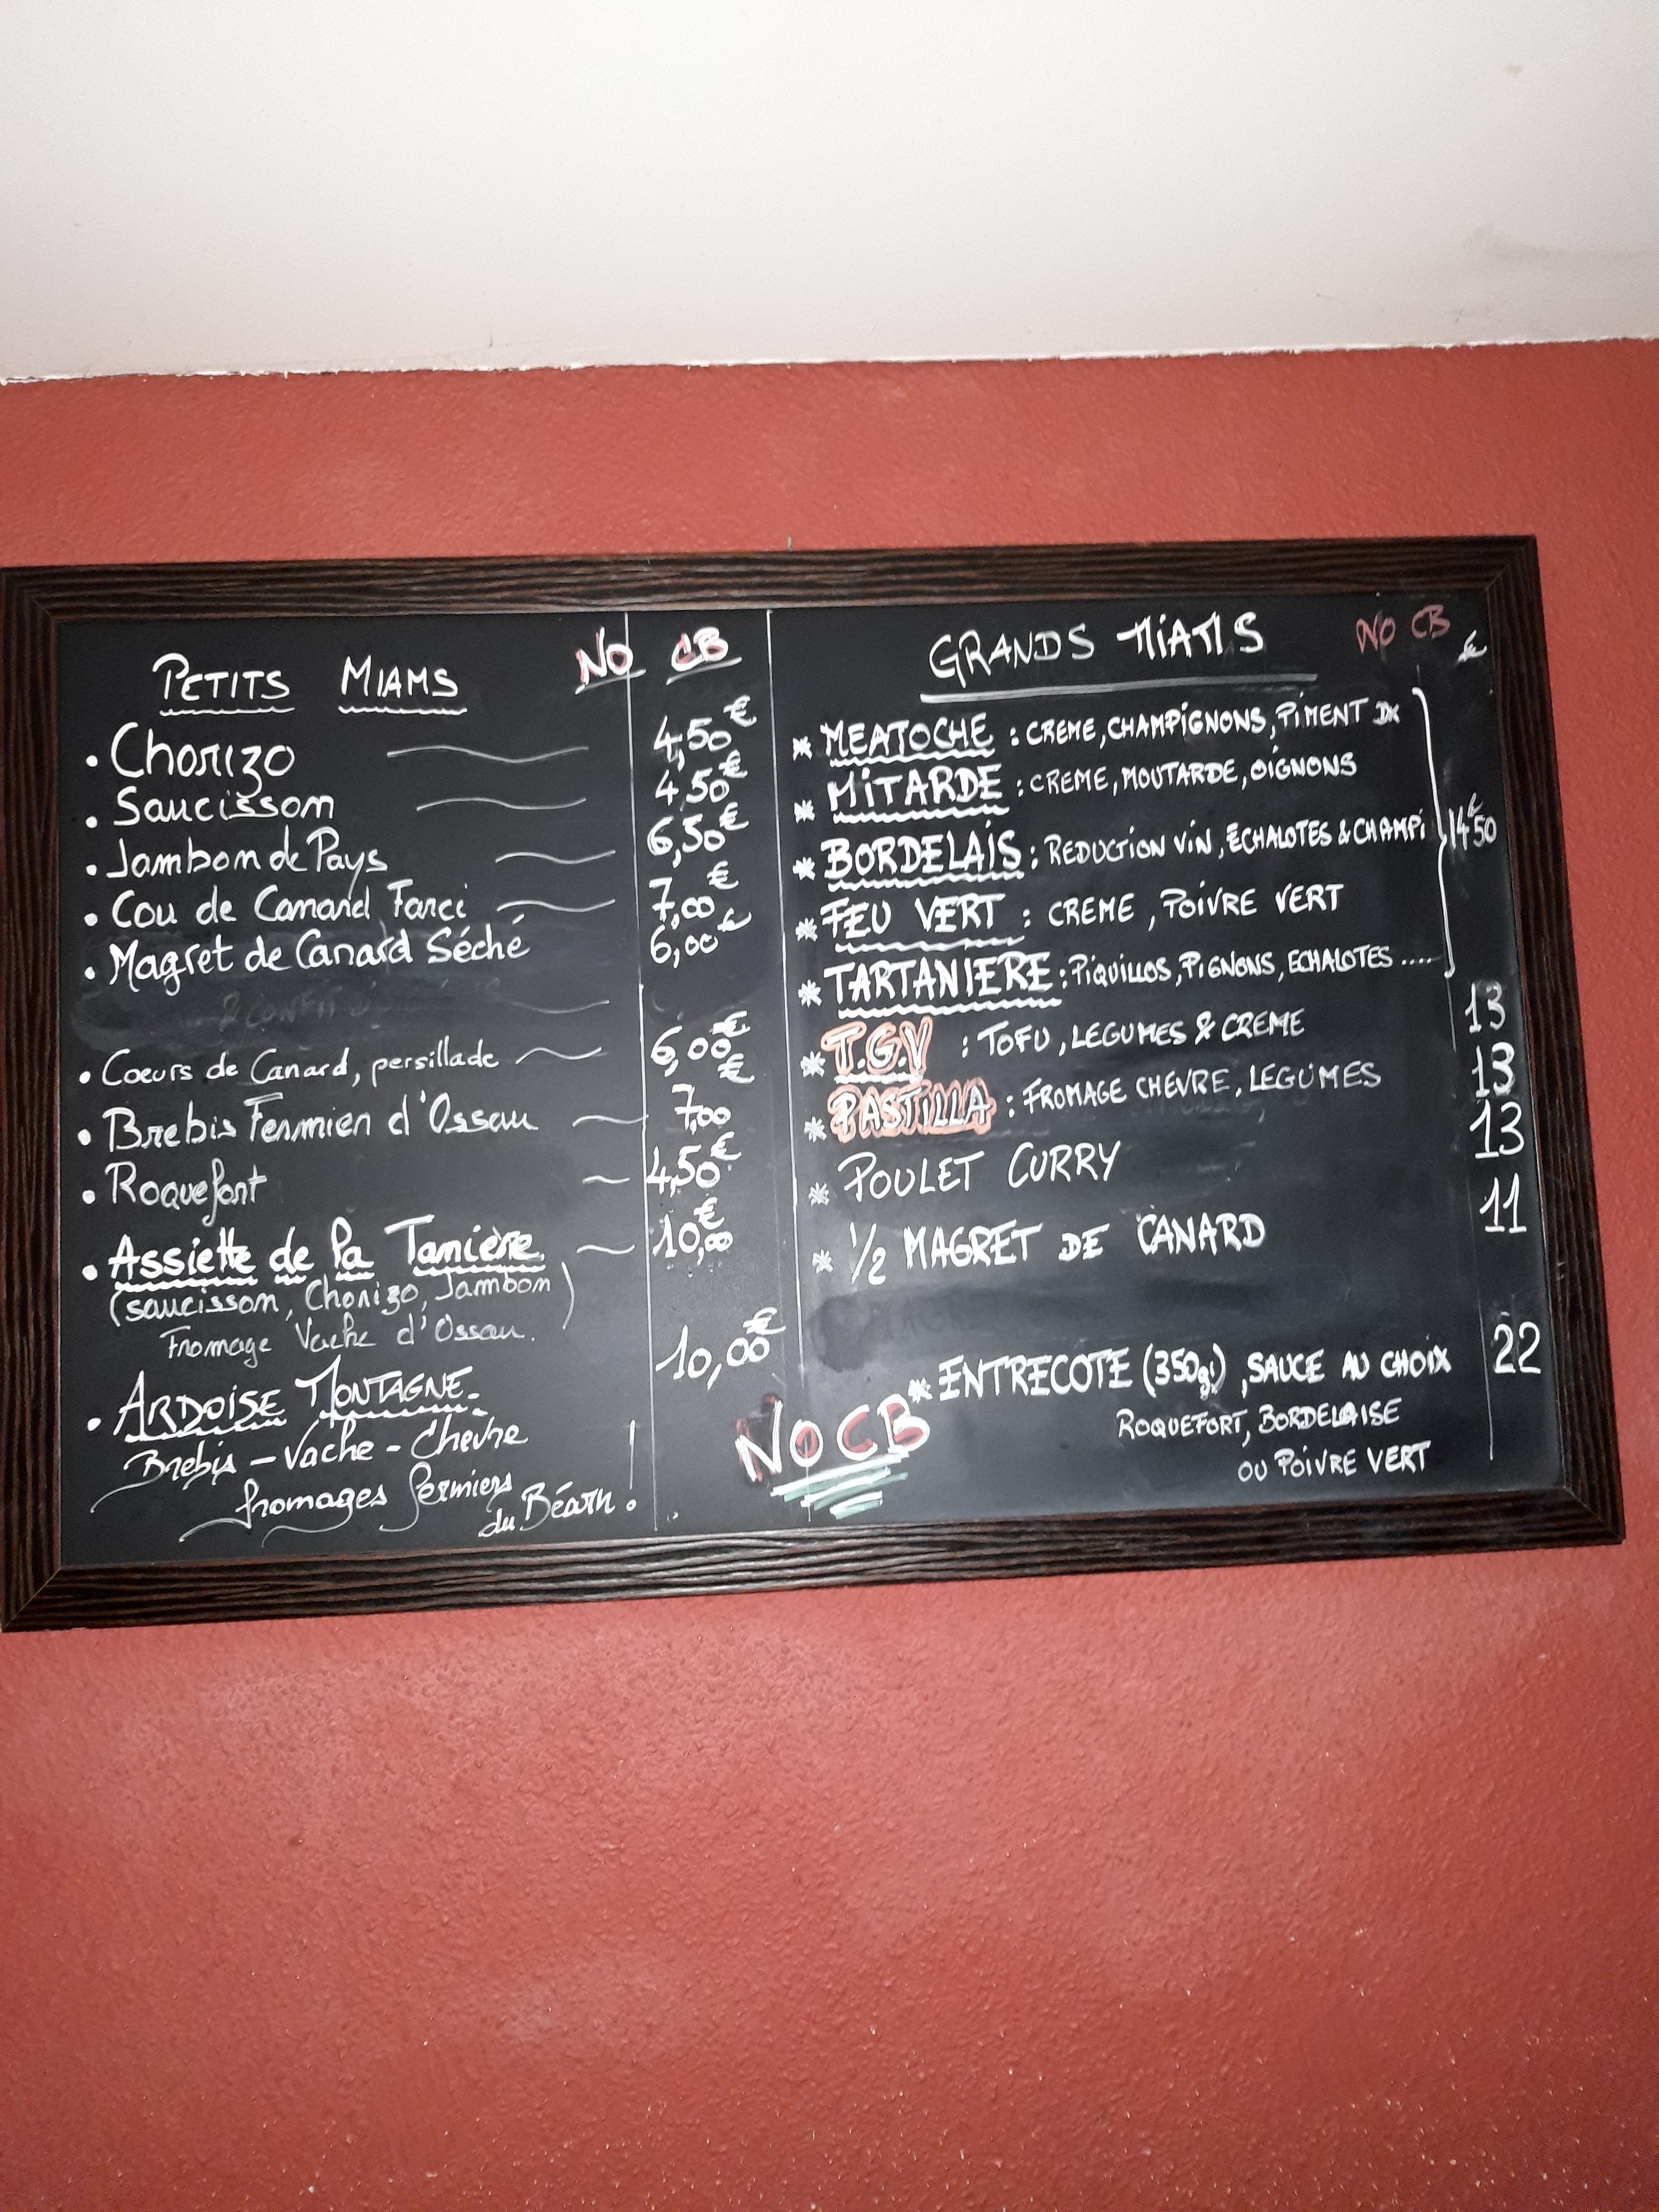 PETITS MIAMS NO CB
• Chorizo 4,50€
• Saucisson 4,50€
• Jambon de Pays 6,50€
• Cou de Canard Farci 7,00€
• Magret de Canard Séché 6,00€
• Coeurs de Canard, persillade 6,00€
• Brebis Fermier d'Ossau 7,00€
• Roquefort 4,50€
• Assiette de la Tanière 10,00€
(saucisson, Chorizo, Jambon
Fromage Vache d'Ossau.)
• ARDOISE MONTAGNE 10,00€
Brebis - Vache - Chèvre
fromages fermiers
du Béarn !
NO CB
GRANDS MIAMS NO CB €
* MEATOCHE : CREME, CHAMPIGNONS, PIMENT DX
* MITARDE : CREME, MOUTARDE, OIGNONS
* BORDELAIS : REDUCTION VIN, ECHALOTES & CHAMPI 14€50
* FEU VERT : CREME, POIVRE VERT
* TARTANIERE : PIQUILLOS, PIGNONS, ECHALOTES ....
* T.G.V : TOFU, LEGUMES & CREME 13
* PASTILLA : FROMAGE CHEVRE, LEGUMES 13
* POULET CURRY 13
* 1/2 MAGRET DE CANARD 11
* ENTRECOTE (350gr), SAUCE AU CHOIX 22
ROQUEFORT, BORDELAISE
OU POIVRE VERT